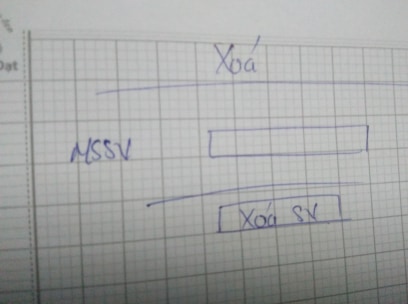 Dat
Xoá
MSSV
Xoá SV